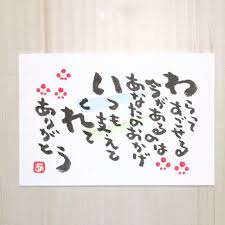 わらって
すごせる
今があるのは
あなたのおかげ
いつも支えて
くれて
ありがとう
あ